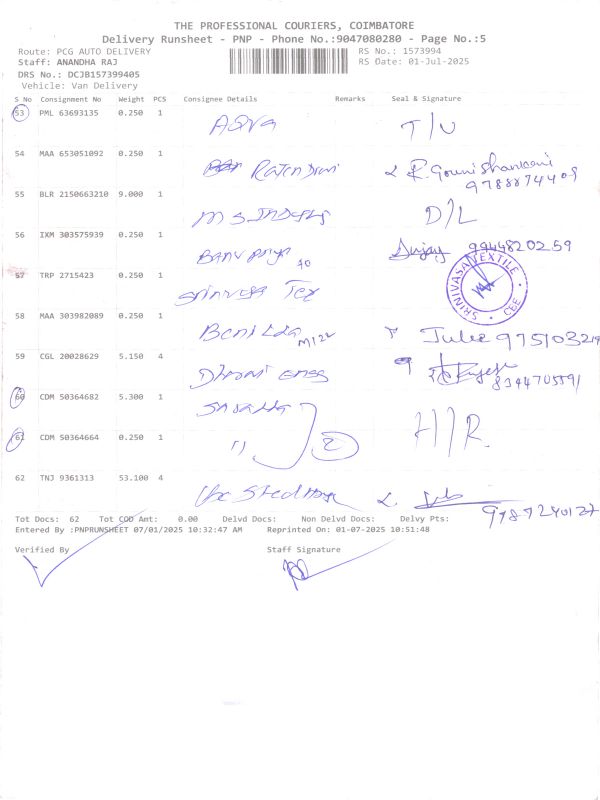 THE PROFESSIONAL COURIERS, COIMBATORE
Delivery Runsheet - PNP - Phone No.:9047080280 - Page No.:5
Route: PCG AUTO DELIVERY RS No.: 1573994
Staff: ANANDHA RAJ RS Date: 01-Jul-2025
DRS No.: DCJB157399405
Vehicle: Van Delivery
S No Consignment No Weight PCS Consignee Details Remarks Seal & Signature
53 PML 63693135 0.250 1 T/U
54 MAA 653051092 0.250 1 R. Gowrishankani
9788874409
55 BLR 2150663210 9.000 1 D/L
56 IXM 303575939 0.250 1 9944820259
57 TRP 2715423 0.250 1 Srinivasa Tex SRINIVASA TEXTILE CBE
58 MAA 303982089 0.250 1
59 CGL 20028629 5.150 4
60 CDM 50364682 5.300 1
61 CDM 50364664 0.250 1 11 2 H/R
62 TNJ 9361313 53.100 4
9787240127
Tot Docs: 62 Tot COD Amt: 0.00 Delvd Docs: Non Delvd Docs: Delvy Pts:
Entered By :PNPRUNSHEET 07/01/2025 10:32:47 AM Reprinted On: 01-07-2025 10:51:48
Verified By Staff Signature